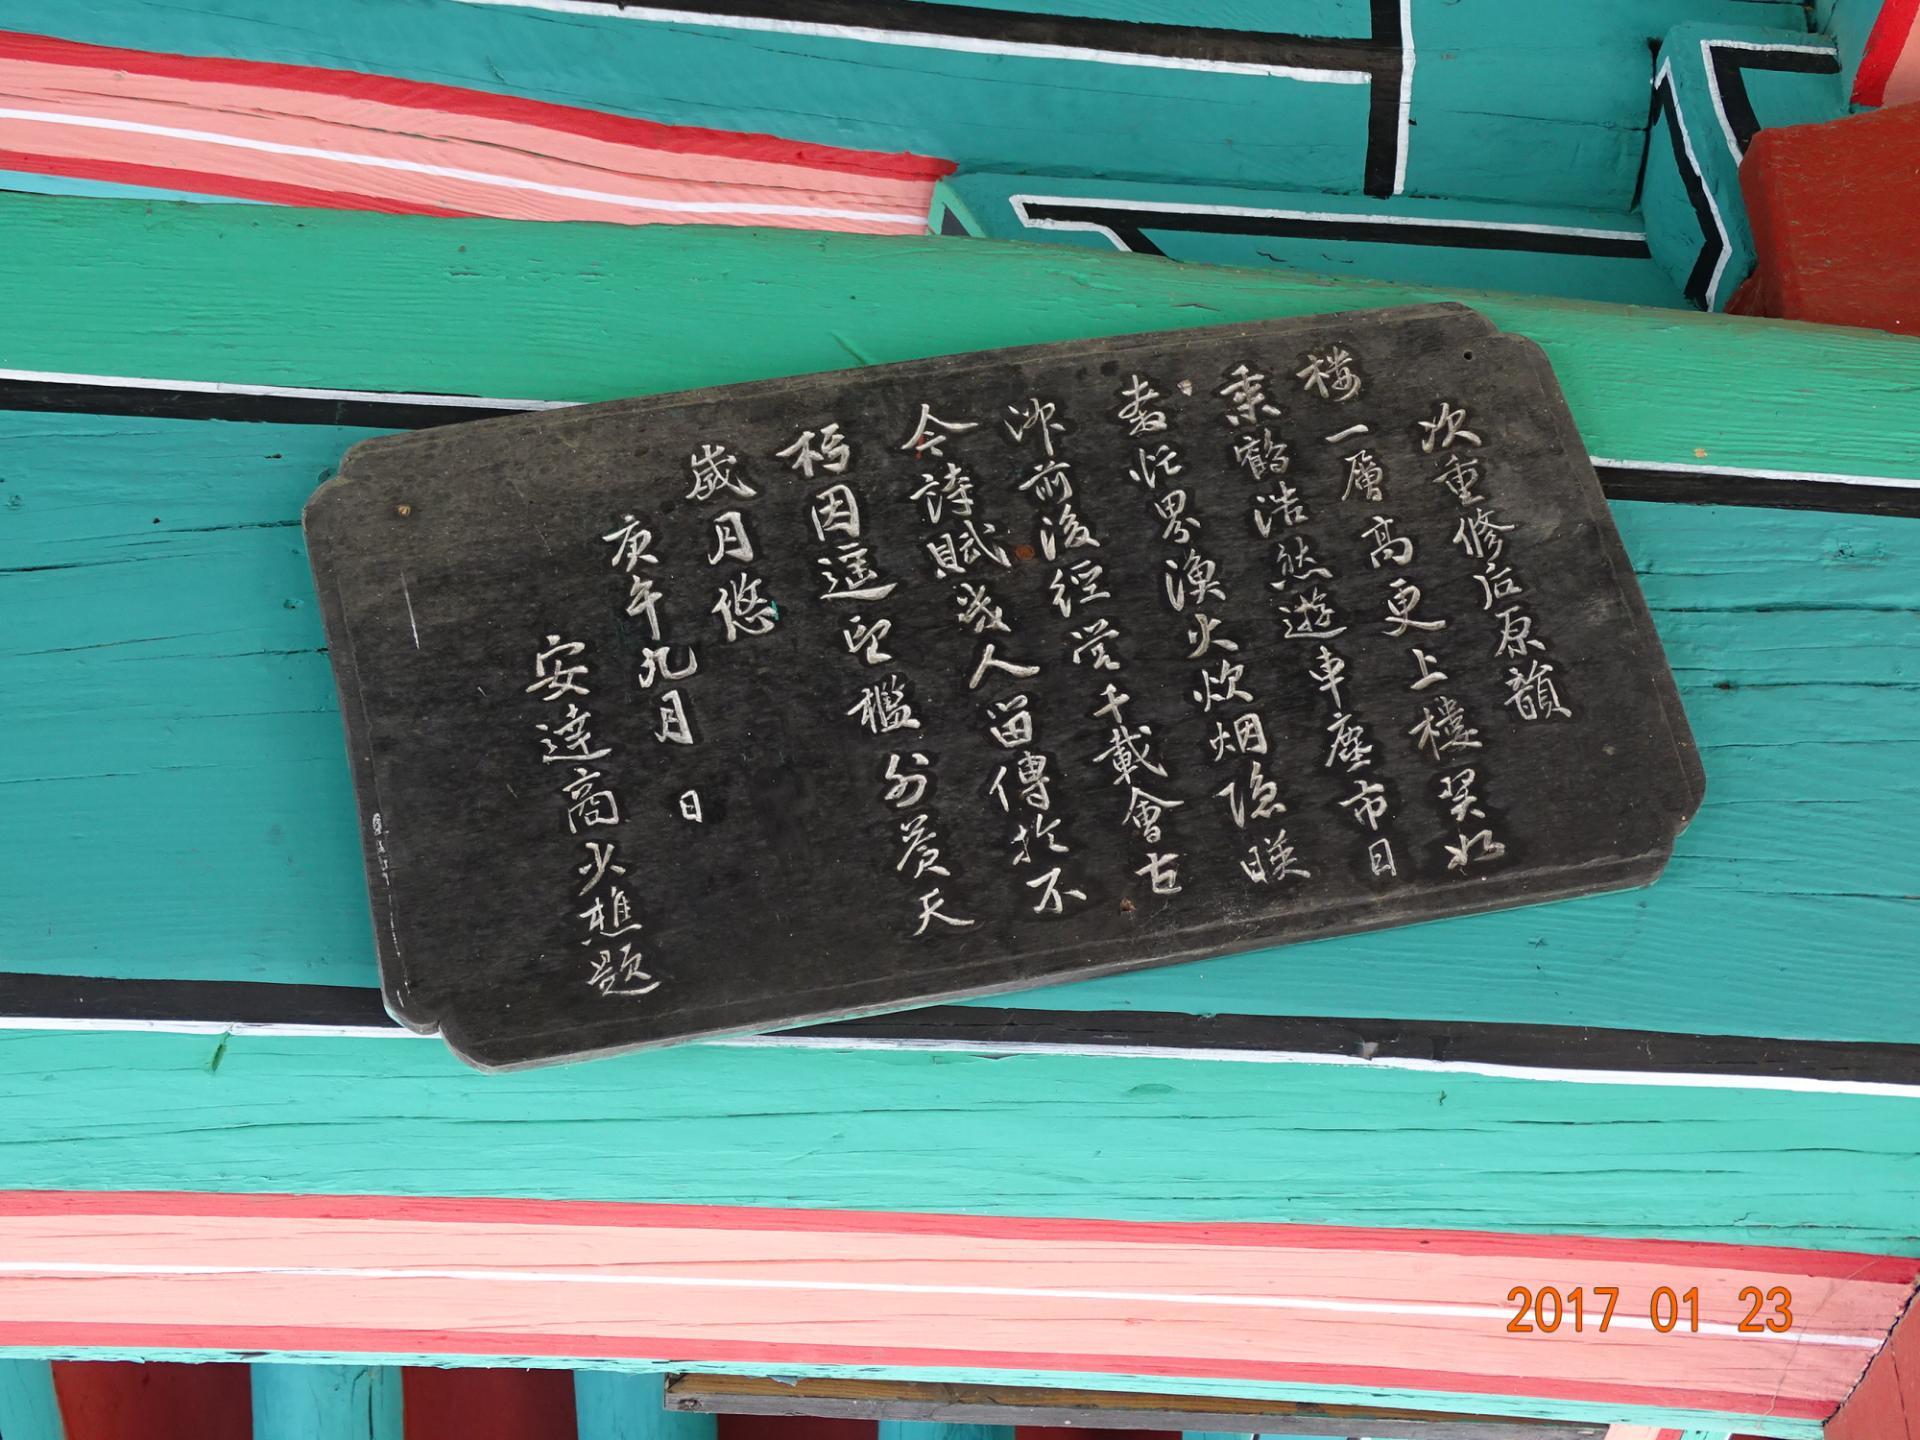 次重修后原韻
楼一層高更上樓奚如
乘鶴浩然遊車塵市日
忙界漁火炊烟隐暎
洲前後經营千載會古
今詩賦幾人留傳於不
朽因遥望檻外蒼天
歲月悠
庚午九月 日
安達商樵題
2017 01 23